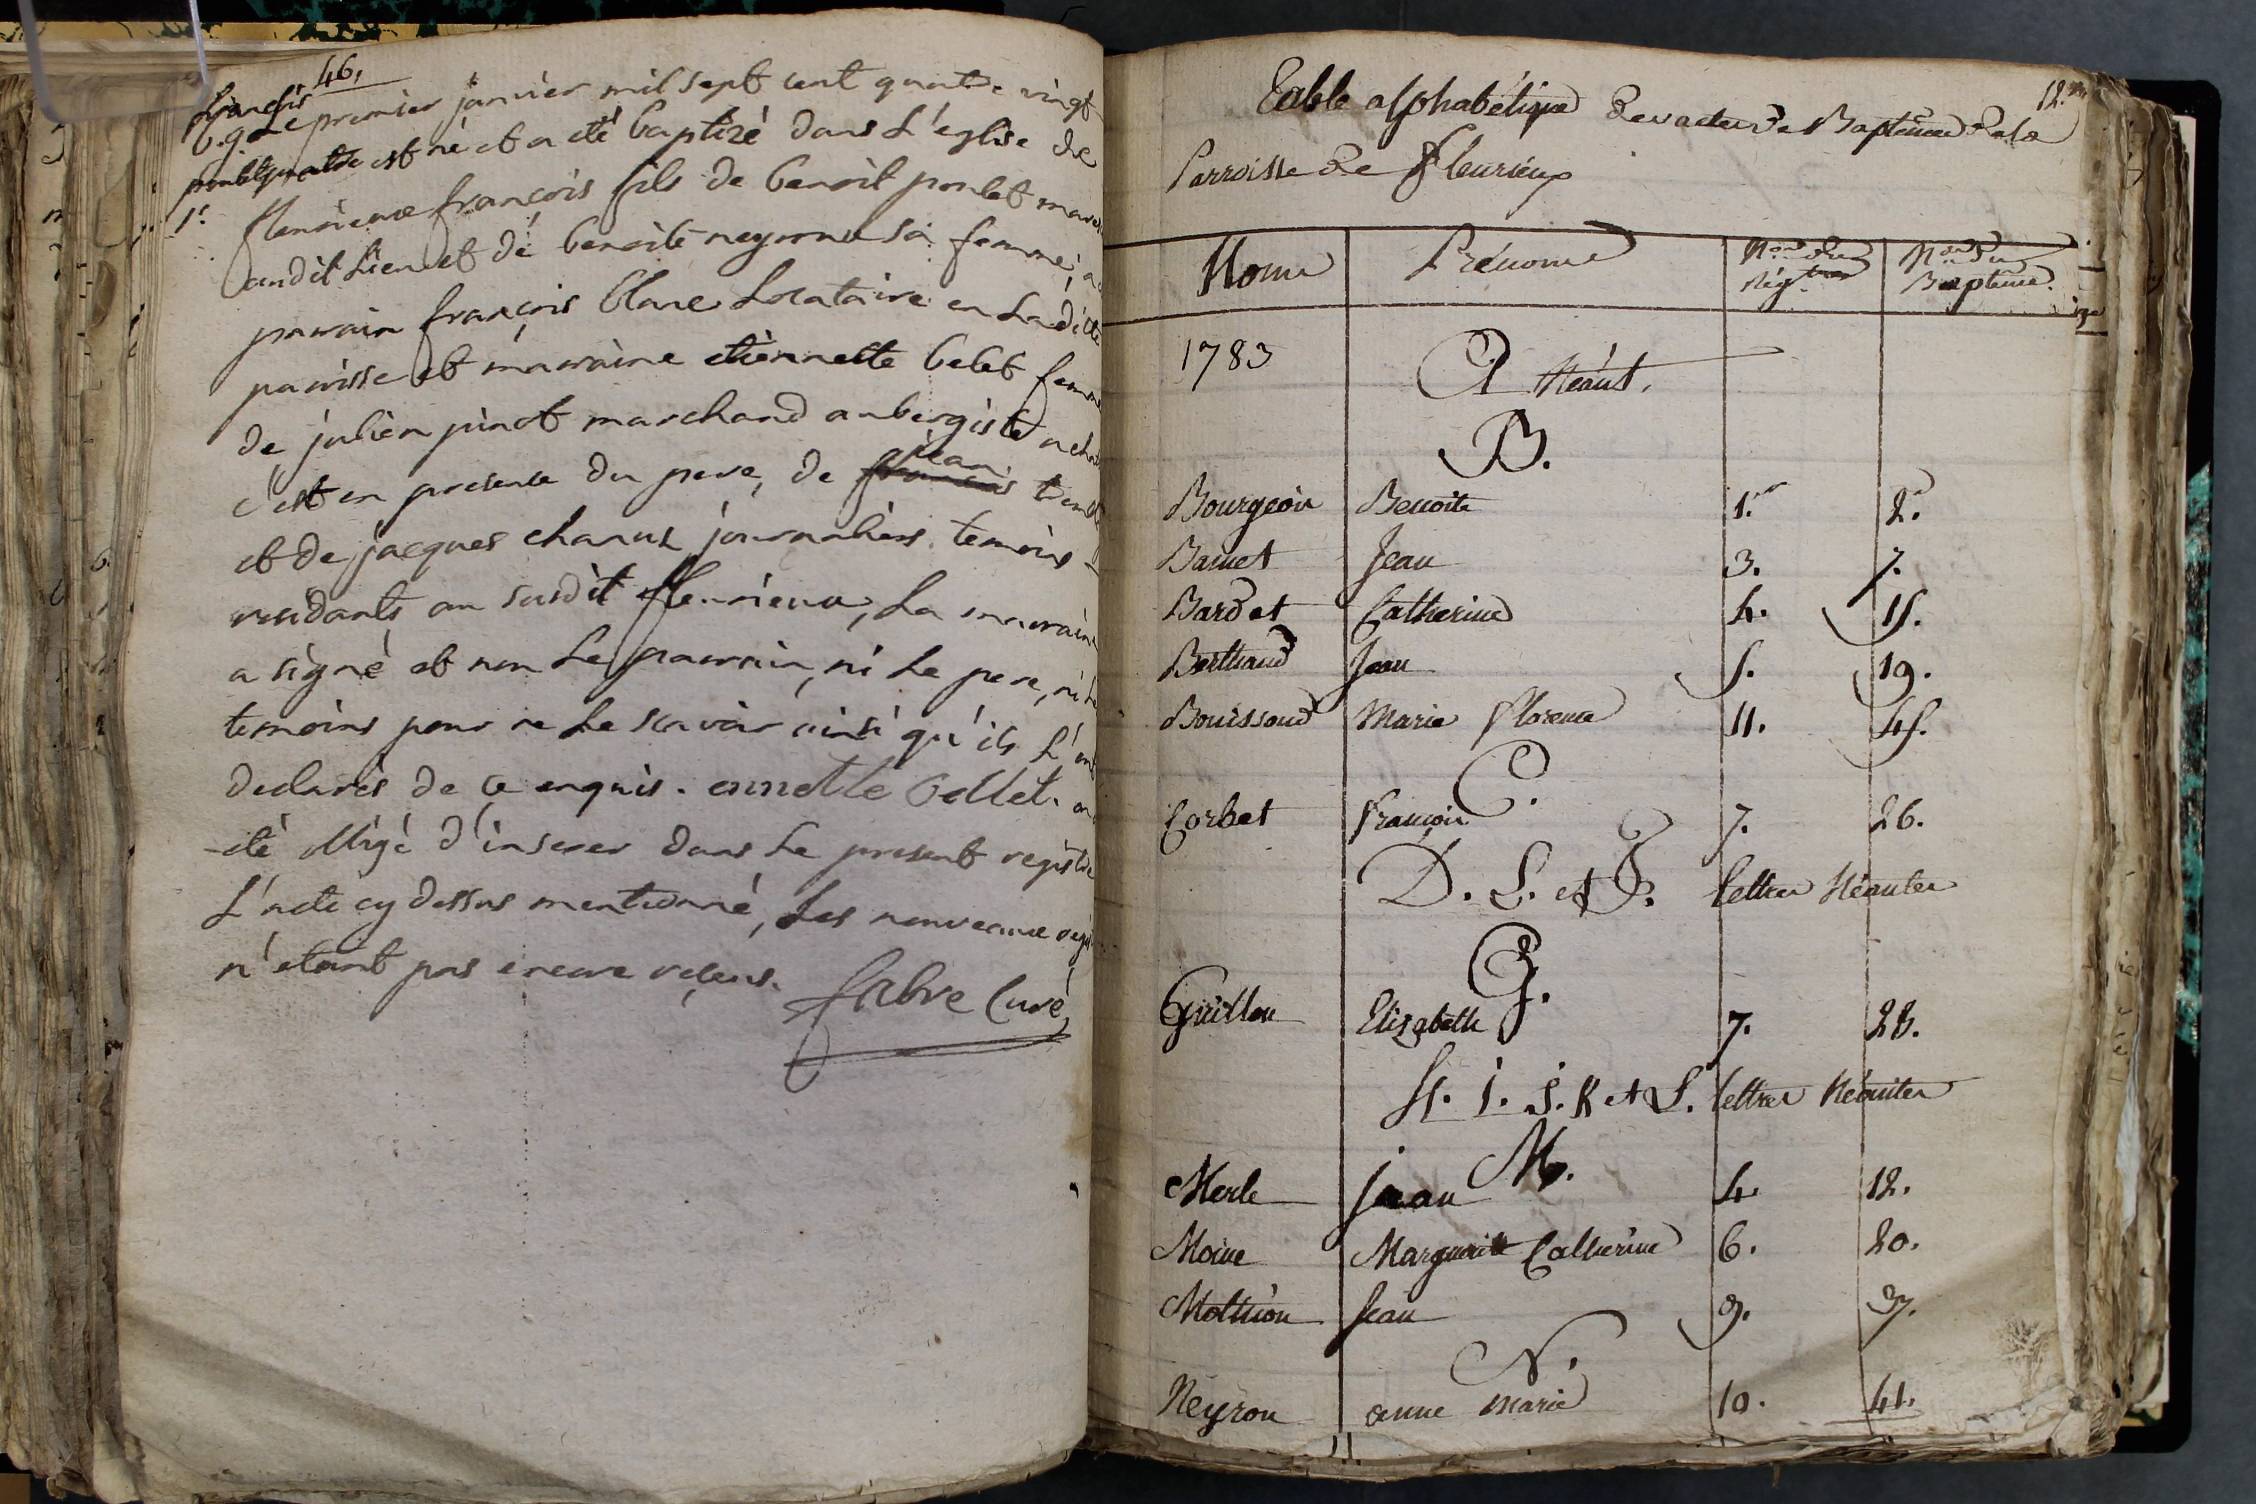 46.
françois
b. 9. Le premier janvier mil sept cent quatre vingt
poulet quatre est né et a été baptizé dans L'eglise de
1.r fleurieux françois fils de benoît poulet
audit Lieu et de benoite neyron sa femme, a
parrain françois blanc Locataire en Laditte
parroisse et marraine etiennette belet femme
de julien pinot marchand aubergiste a
c'est en presence du pere, de jean
et de jacques chanus journaliers temoins
residants au susdit fleurieux, La marraine
a signé et non Le parrain, ni Le pere, ni Le
temoins pour ne Le scavoir ainsi qu'ils L'ont
declarés de ce enquis. ennette bellet. on
-été obligé d'inserer dans Le present registre
L'acte cy dessus mentionné, Les nouveaux
n'etant pas encore reçeus.
fabre Curé
12.me
Table alphabétique des actes de Baptême de la
Parroisse de Fleurieux
Noms Prénoms N.os du Rég.tre N.os du Baptême.
1783 A Néant.
B.
Bourgeon Benoite 1.er 2.
Barnet Jean 3. 7.
Bardet Catherine 4. 15.
Berthaud Jean 5. 19.
Bouissoud Marie Florence 11. 45.
C.
Corbet François 7. 26.
D. E. et F. Lettres Néantes
G.
Guillon Elizabeth 7. 28.
H. I. J. K et L. Lettres Néantes
M.
Merle Jean 4. 12.
Moine Marguerite Catherine 6. 20.
Mothion Jean 9. 37.
N.
Neyron anne Marie 10. 41.